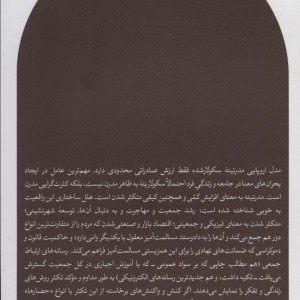 مدل اروپایی مدرنیتهٔ سکولارشده فقط ارزش صادراتی محدودی دارد. مهم‌ترین عامل در ایجاد
بحران‌های معنا در جامعه و زندگیِ فرد احتمالاً سکولاریتهٔ به ظاهر مدرن نیست، بلکه کثرت‌گرایی مدرن
است. مدرنیته به معنای افزایش کمّی و همچنین کیفی متکثر شدن است. علل ساختاری این واقعیت
به خوبی شناخته شده است: رشد جمعیت و مهاجرت و به دنبال آن‌ها، توسعهٔ شهرنشینی؛
متکثر شدن به معنای فیزیکی و جمعیتی؛ اقتصاد بازار و صنعتی‌شدن که مردم را از متفاوت‌ترین انواع
دور هم جمع می‌کند و آن‌ها را به دادوستد مسالمت‌آمیز معقول با یکدیگر وامی‌دارد؛ و حاکمیت قانون و
دموکراسی که ضمانت‌های نهادی را برای این همزیستی مسالمت‌آمیز فراهم می‌کند. رسانه‌های ارتباط
جمعی (هم مطالب چاپی که بر سواد عمومی که با آموزش اجباری در کل جمعیت گسترش
می‌یافت تکیه داشت، و هم جدیدترین رسانه‌های الکترونیکی) به طور مداوم و مؤکد تکثر روش‌های
زندگی و تفکر را نمایش می‌دهند. اگر کنش و واکنش‌های برخاسته از این تکثر با انواع «حصارها»